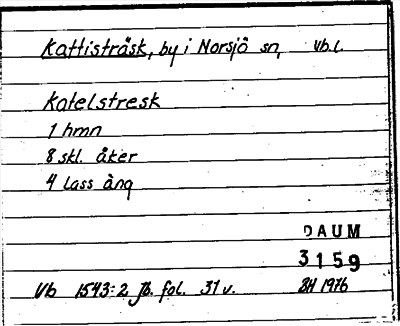 Kattisträsk, by i Norsjö sn, Vb.l.
Katelstresk
1 hmn
8 skl. åker
4 lass äng
DAUM
3159
Vb 1543:2 Jb. fol. 31 v. BH 1976